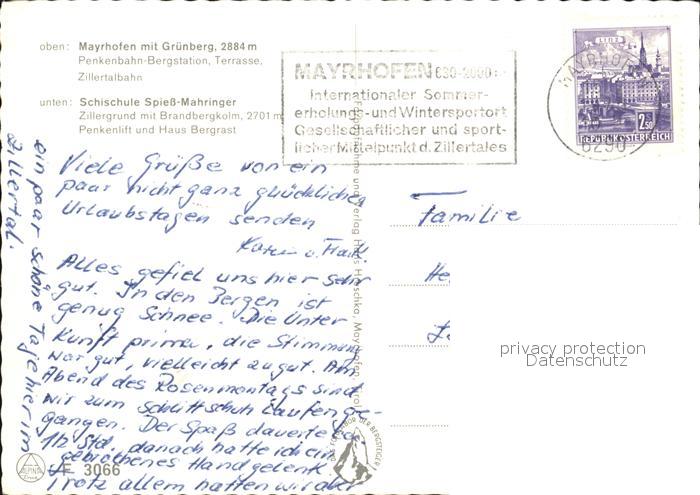 oben: Mayrhofen mit Grünberg, 2884 m
Penkenbahn-Bergstation, Terrasse,
Zillertalbahn
unten: Schischule Spieß-Mahringer
Zillergrund mit Brandbergkolm, 2701 m
Penkenlift und Haus Bergrast
MAYRHOFEN 630-2000
Internationaler Sommer-
erholungs- und Wintersportort
Gesellschaftlicher und sport-
licher Mittelpunkt d. Zillertales
MAYRHOFEN
6290
LINZ
2.50
REPUBLIK ÖSTERREICH
Viele Grüße von ein
paar nicht ganz glücklichen
Urlaubstagen senden
Katrin u. Frank.
Alles gefiel uns hier sehr
gut. In den Bergen ist
genug Schnee. Die Unter
kunft prima, die Stimmung
war gut, vielleicht zu gut. Am
Abend des Rosenmontags sind
wir zum Schlittschuh laufen ge-
gangen. Der Spaß dauerte
1/2 Std. danach hatte ich ein
gebrochenes Handgelenk.
Trotz allem hatten wir
ein paar schöne Tage hier im
Zillertal.
Familie
He
privacy protection
Datenschutz
ALPINA
3066